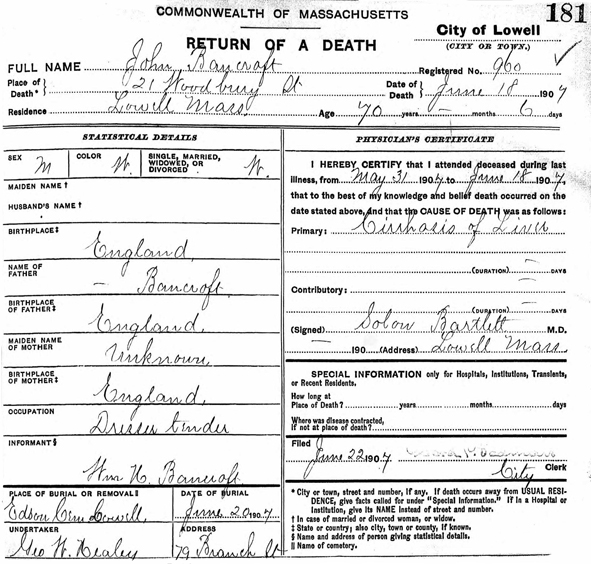 181
COMMONWEALTH OF MASSACHUSETTS
City of Lowell
(CITY OR TOWN.)
RETURN OF A DEATH
FULL NAME John Bancroft Registered No. 960
Place of Death* } 21 Woodbury St Date of Death } June 18 1907
Residence Lowell Mass Age 70 years — months 6 days
STATISTICAL DETAILS
SEX M COLOR W. SINGLE, MARRIED, WIDOWED, OR DIVORCED W.
MAIDEN NAME †
HUSBAND'S NAME †
BIRTHPLACE‡
England
NAME OF FATHER
— Bancroft
BIRTHPLACE OF FATHER‡
England,
MAIDEN NAME OF MOTHER
Unknown,
BIRTHPLACE OF MOTHER‡
England,
OCCUPATION
Dresser tender
INFORMANT§
Wm H. Bancroft
PLACE OF BURIAL OR REMOVAL‖ DATE OF BURIAL
Edson Cem Lowell, June 20 1907
UNDERTAKER ADDRESS
Geo W. Healey 79 Branch St
PHYSICIAN'S CERTIFICATE
I HEREBY CERTIFY that I attended deceased during last
illness, from May 31 1907 to June 18 1907,
that to the best of my knowledge and belief death occurred on the
date stated above, and that the CAUSE OF DEATH was as follows:
Primary: Cirrhosis of Liver
(DURATION) — DAYS
Contributory: —
(DURATION) — DAYS
(Signed) Solon Bartlett M.D.
— 190 (Address) Lowell Mass.
SPECIAL INFORMATION only for Hospitals, Institutions, Transients,
or Recent Residents.
How long at
Place of Death? years months days
Where was disease contracted,
if not at place of death?
Filed
June 22 1907
City Clerk
* City or town, street and number, if any. If death occurs away from USUAL RESI-
DENCE, give facts called for under "Special Information." If in a Hospital or
Institution, give its NAME instead of street and number.
† In case of married or divorced woman, or widow.
‡ State or country; also city, town or county, if known.
§ Name and address of person giving statistical details.
‖ Name of cemetery.